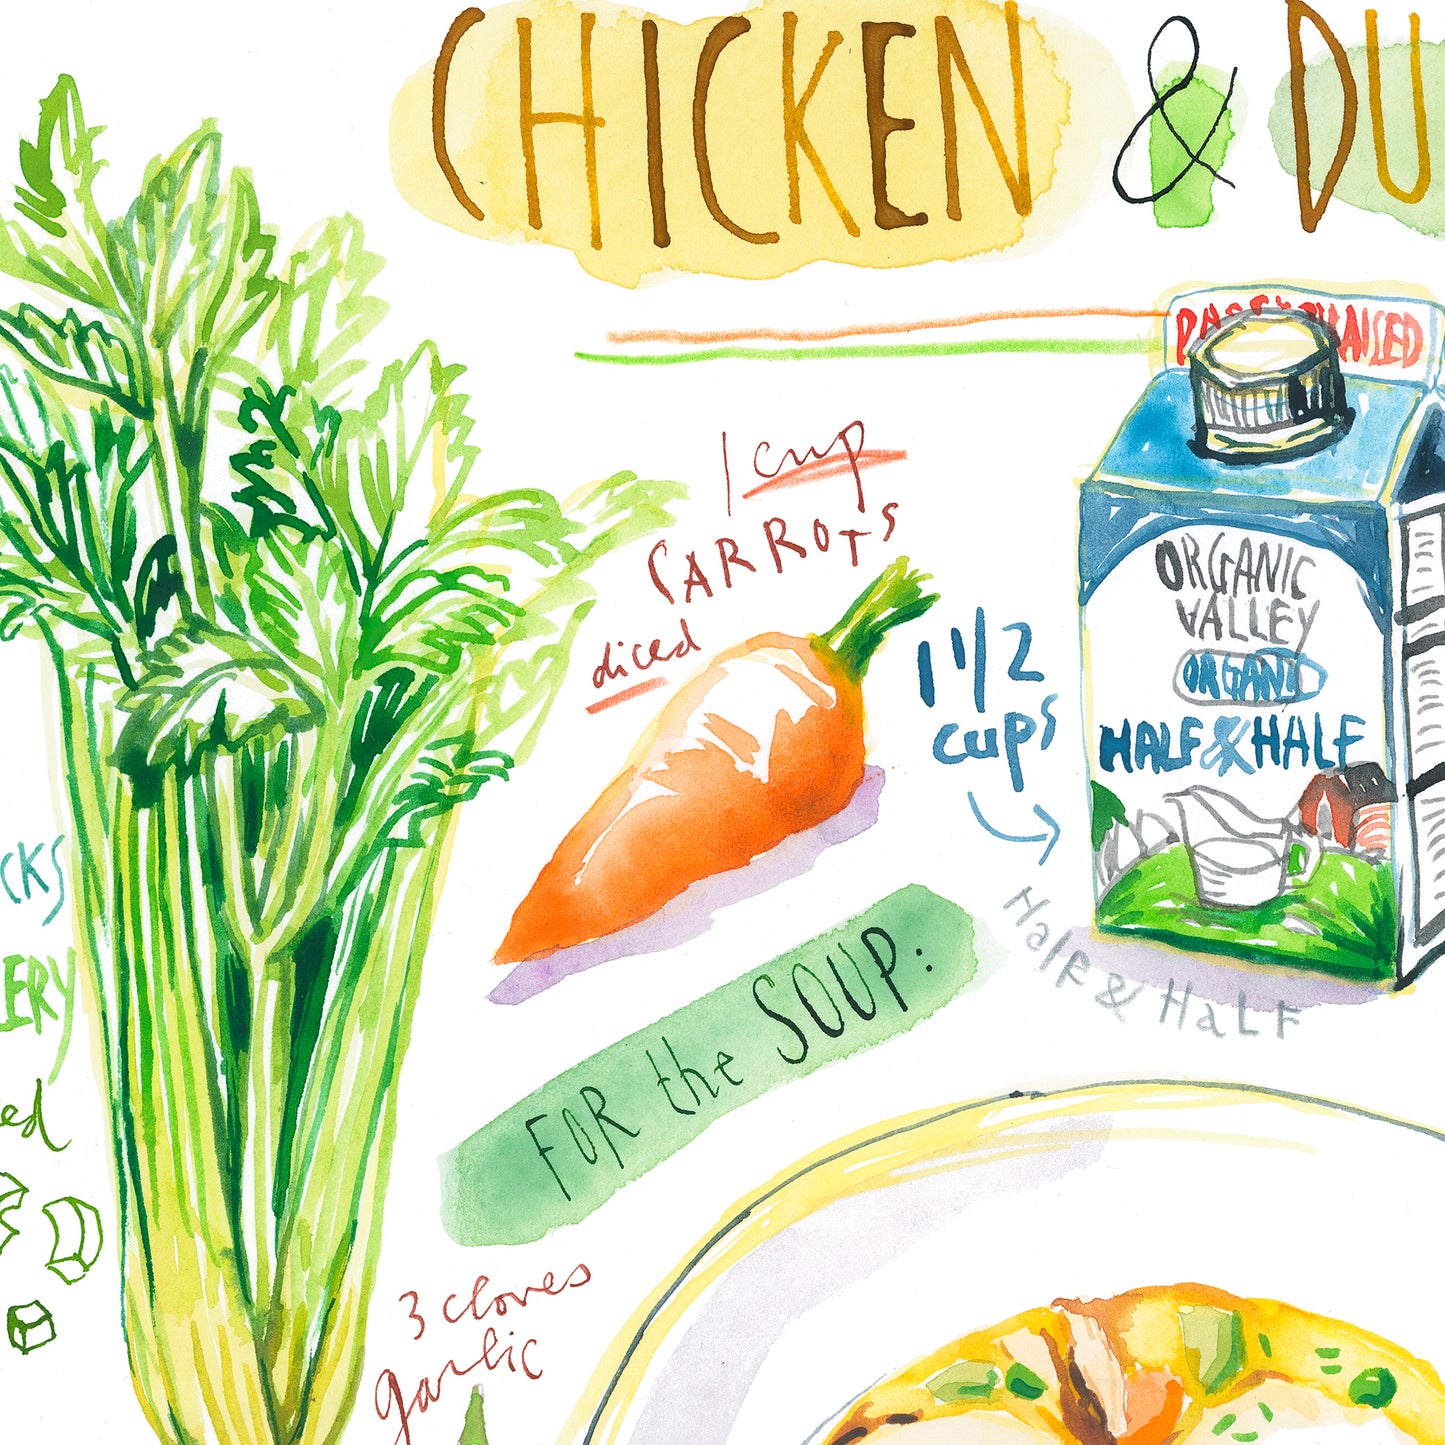 CHICKEN & DU
PASTEURAISED
1 cup
CARROTS
diced
1 1/2
cups
ORGANIC
VALLEY
ORGANIC
HALF & HALF
Half & HaLF
CKS
ERY
ed
FOR the SOUP:
3 cloves
garlic